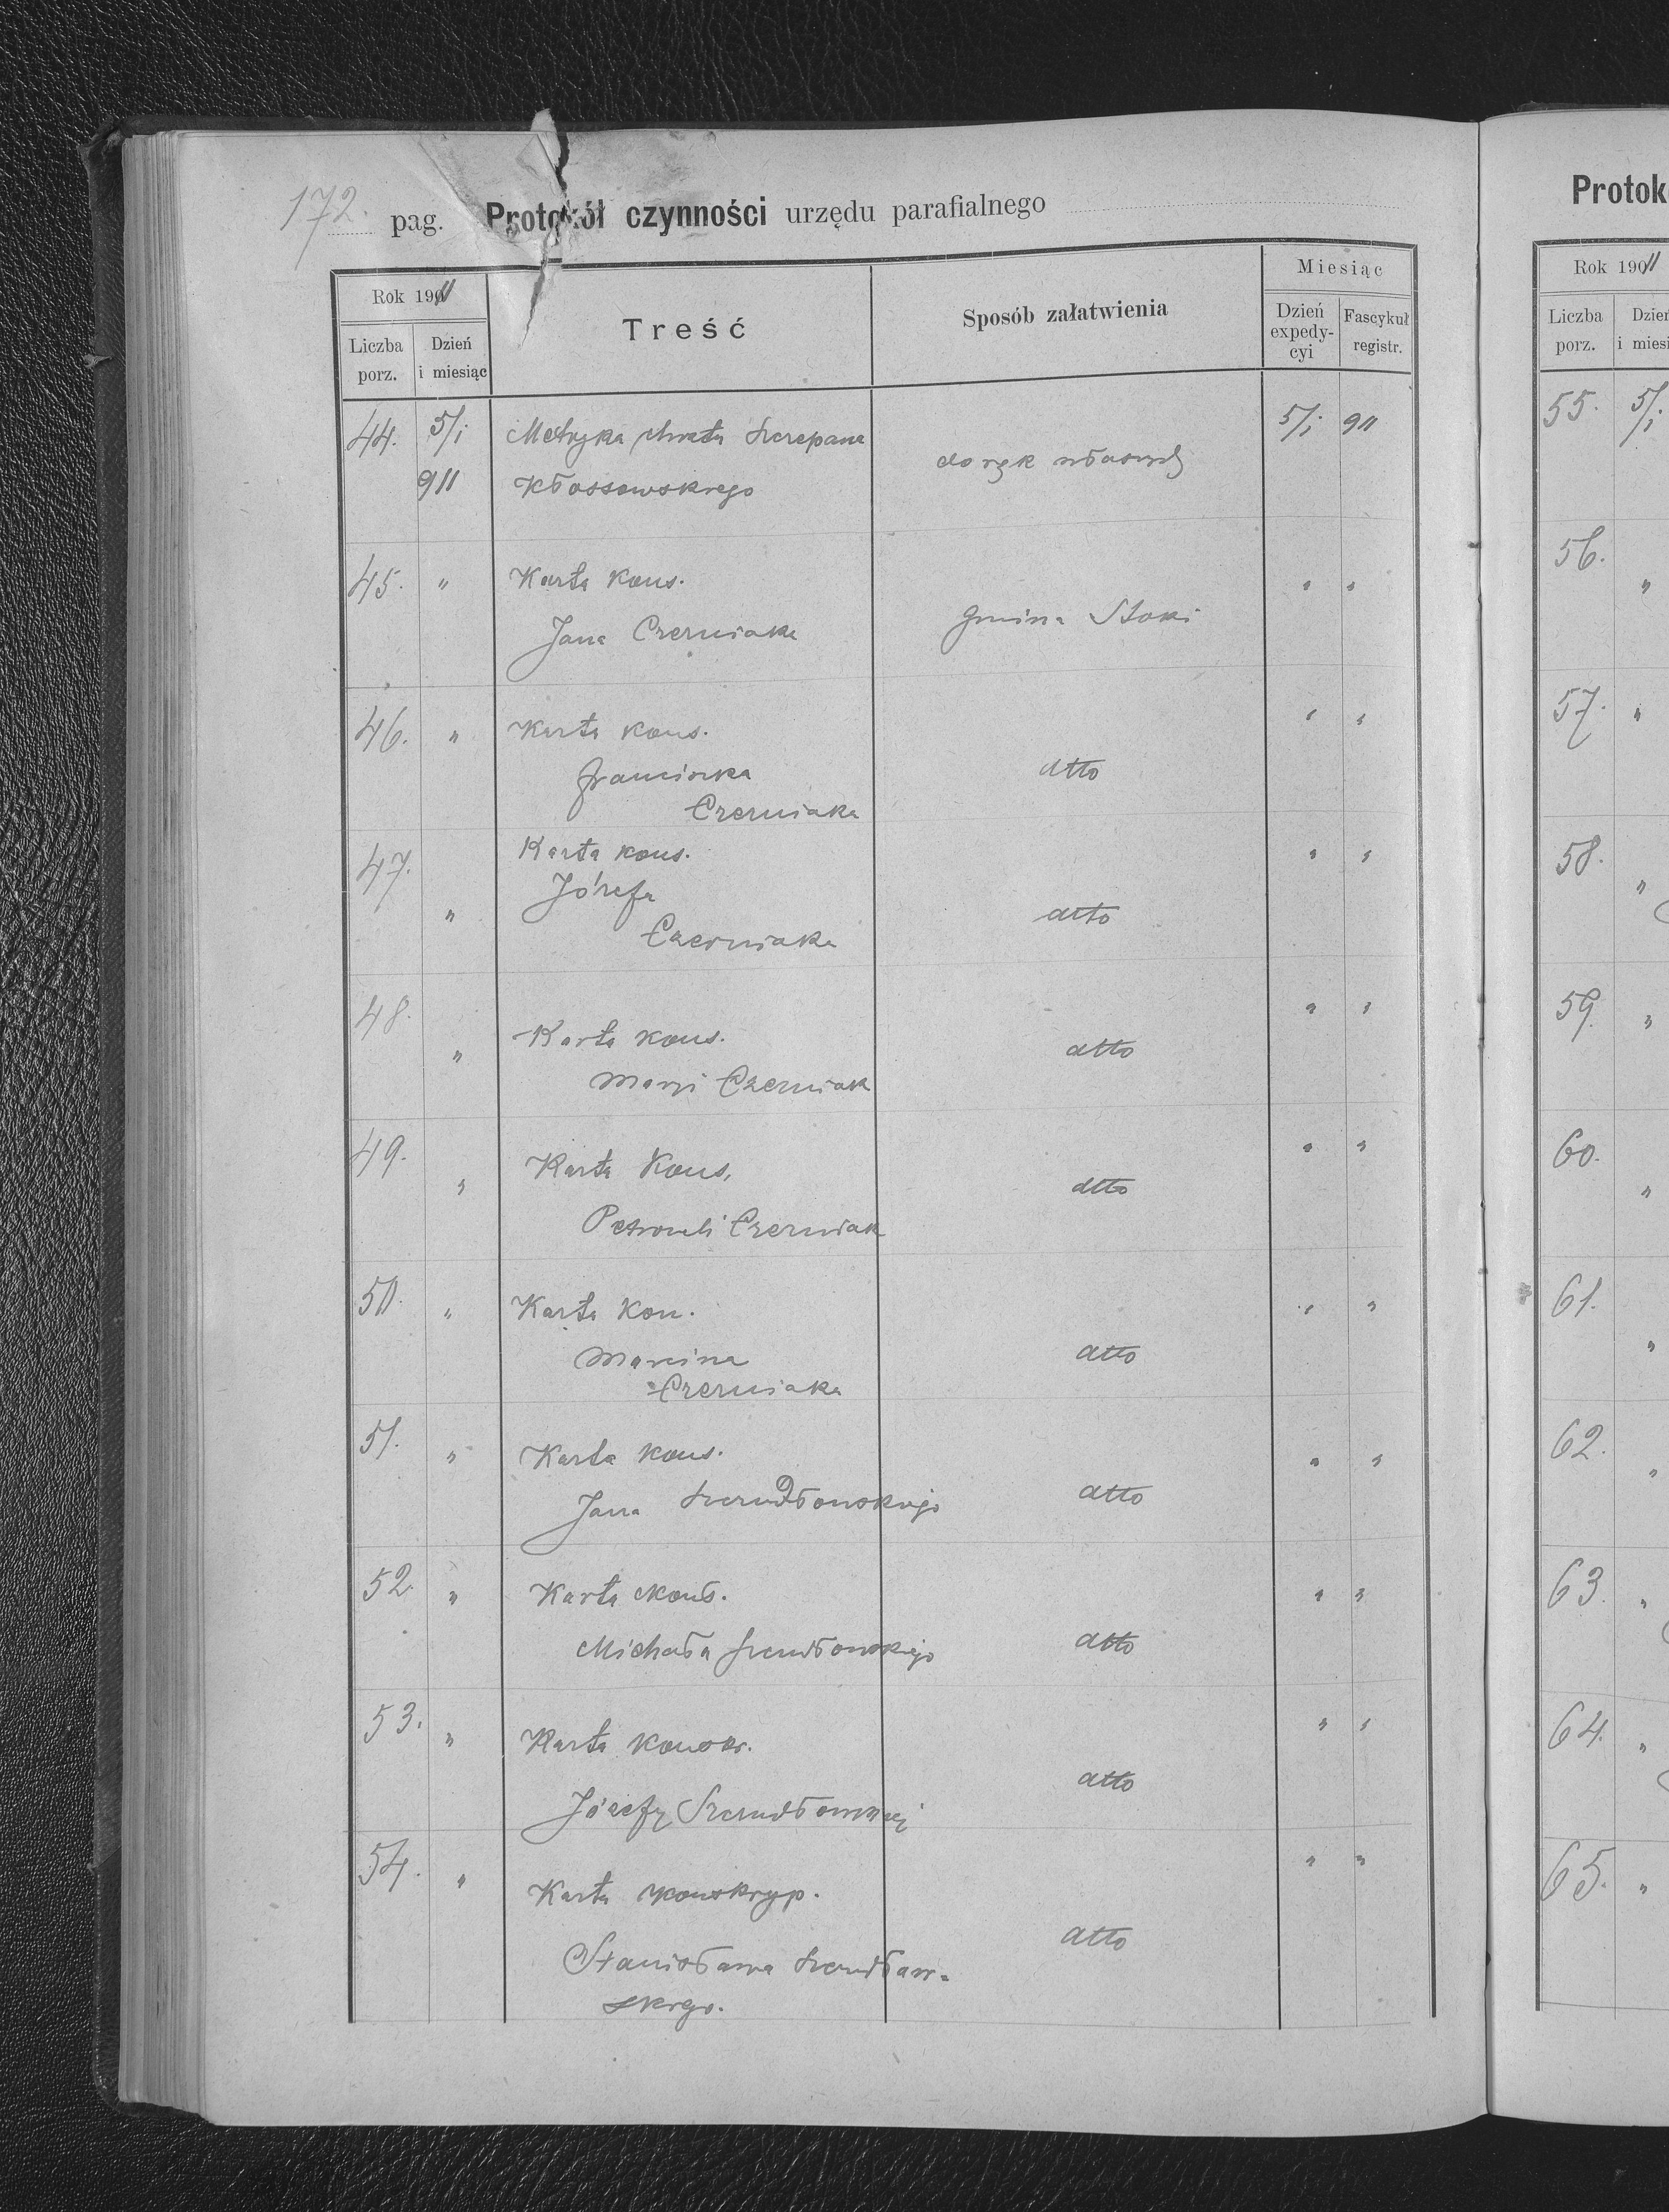 172. pag. Protokół czynności urzędu parafialnego
Rok 1911
Liczba porz.
Dzień i miesiąc
Treść
Sposób załatwienia
Miesiąc
Dzień expedycyi
Fascykuł registr.
44. 5/i Metryka chrztu Szczepana 5/i 911
911 Kłossowskiego do rąk własnych
45. " Karta Kons. " "
Jana Czerniaka gmina Stoki
46. " Karta kons. " "
Franciszka dtto
Czerniaka
47. Karta kons. " "
" Józefa dtto
Czerniaka
48. " "
" Karta kons. dtto
Maryi Czerniak
49. " Karta Kons. dtto " "
Petroneli Czerniak
50. " Karta Kon. " "
Marcina dtto
Czerniaka
51. " Karta kons. " "
Jana dtto
52. " Karta Kons. " "
Michała dtto
53. " Karta Konskr. " "
Józefy dtto
54. " Karta Konskryp. " "
Stanisława dtto
skiego.
Protok
Rok 1911
Liczba porz.
55. 5/i
56. "
57. "
58. "
59. "
60. "
61. "
62. "
63. "
64. "
65. "